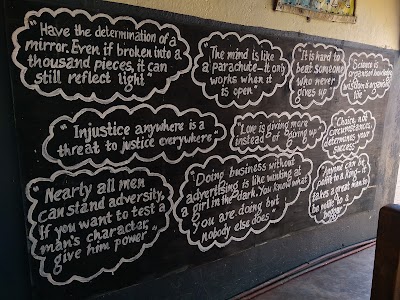 " Have the determination of a
mirror. Even if broken into a
thousand pieces, it can
still reflect light "
" The mind is like
a parachute - it only
works when it
is open "
" It is hard to
beat someone
who never
gives up "
Science is
organised knowledge
wisdom is organised
life "
" Injustice anywhere is a
threat to justice everywhere "
" Love is giving more
instead of giving up "
" Choice, not
circumstances,
determines your
success "
" Nearly all men
can stand adversity,
If you want to test a
man's character,
give him power "
" Doing business without
advertising is like winking at
a girl in the dark. You know what
you are doing but
nobody else does "
" Anyone can
point to a king - it
takes a great man to
be